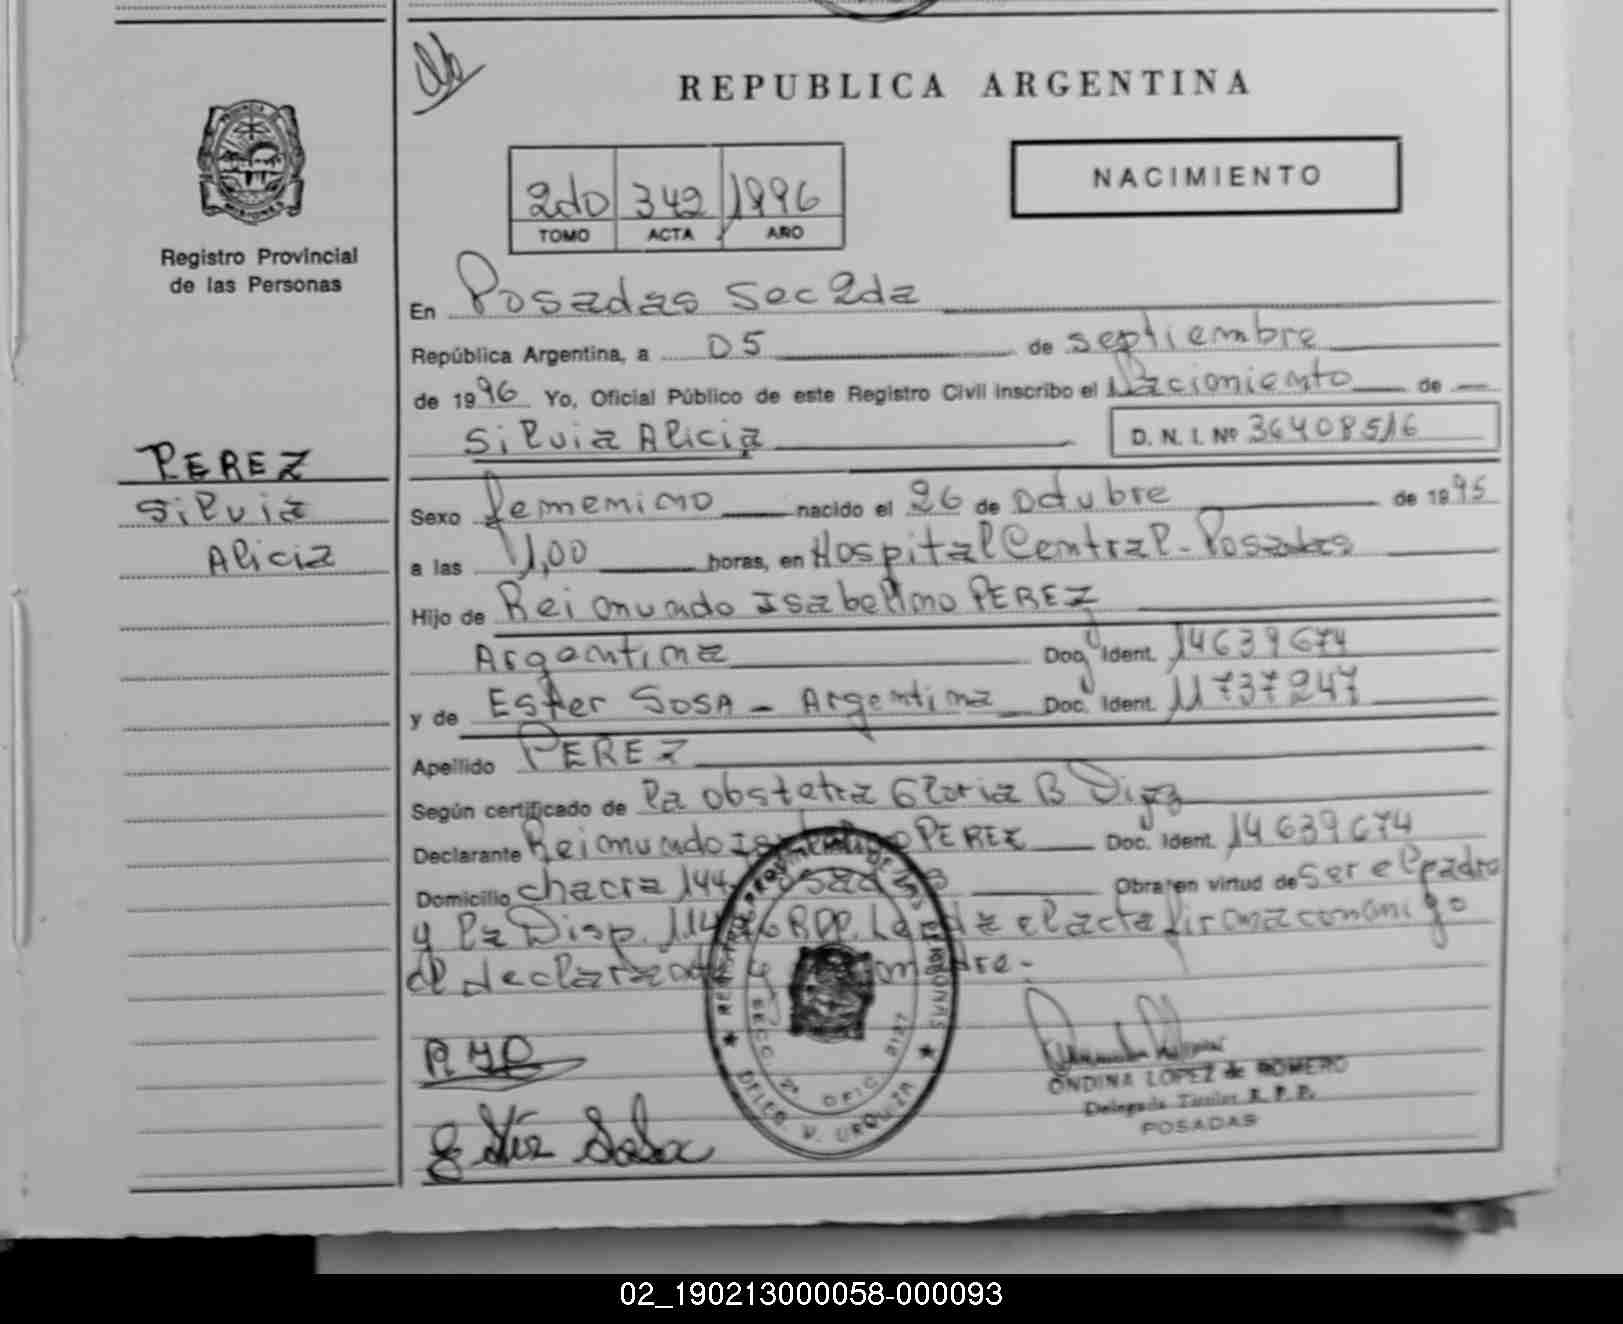 REPUBLICA ARGENTINA
PROVINCIA DE
MISIONES
Registro Provincial
de las Personas
2do 342 1996
TOMO ACTA AÑO
NACIMIENTO
En Posadas Sec 2da
República Argentina, a 05 de septiembre
de 1996 Yo, Oficial Público de este Registro Civil inscribo el Nacimiento de
Silvia Alicia D. N. I. Nº 36408516
PEREZ
Silvia
Alicia
Sexo femenino nacido el 26 de octubre de 1995
a las 11,00 horas, en Hospital Central - Posadas
Hijo de Reimundo Isabelino PEREZ
Argentina Doc. Ident. 14639674
y de Ester SOSA - Argentina Doc. Ident. 11737247
Apellido PEREZ
Según certificado de la obstetra Gloria B Diaz
Declarante Reimundo Isabelino PEREZ Doc. Ident. 14639674
Domicilio chacra 144 Posadas Obra en virtud de ser el padre
y la Disp. RPP. Leída el acta firma conmigo
el declarante y madre.
REGISTRO PROVINCIAL DE LAS PERSONAS
SECC. 2ª OFIC. 2127
DELEG. V. URQUIZA
RYP
Ester Sosa
ONDINA LOPEZ de ROMERO
Delegada Titular R. P. P.
POSADAS
02_190213000058-000093